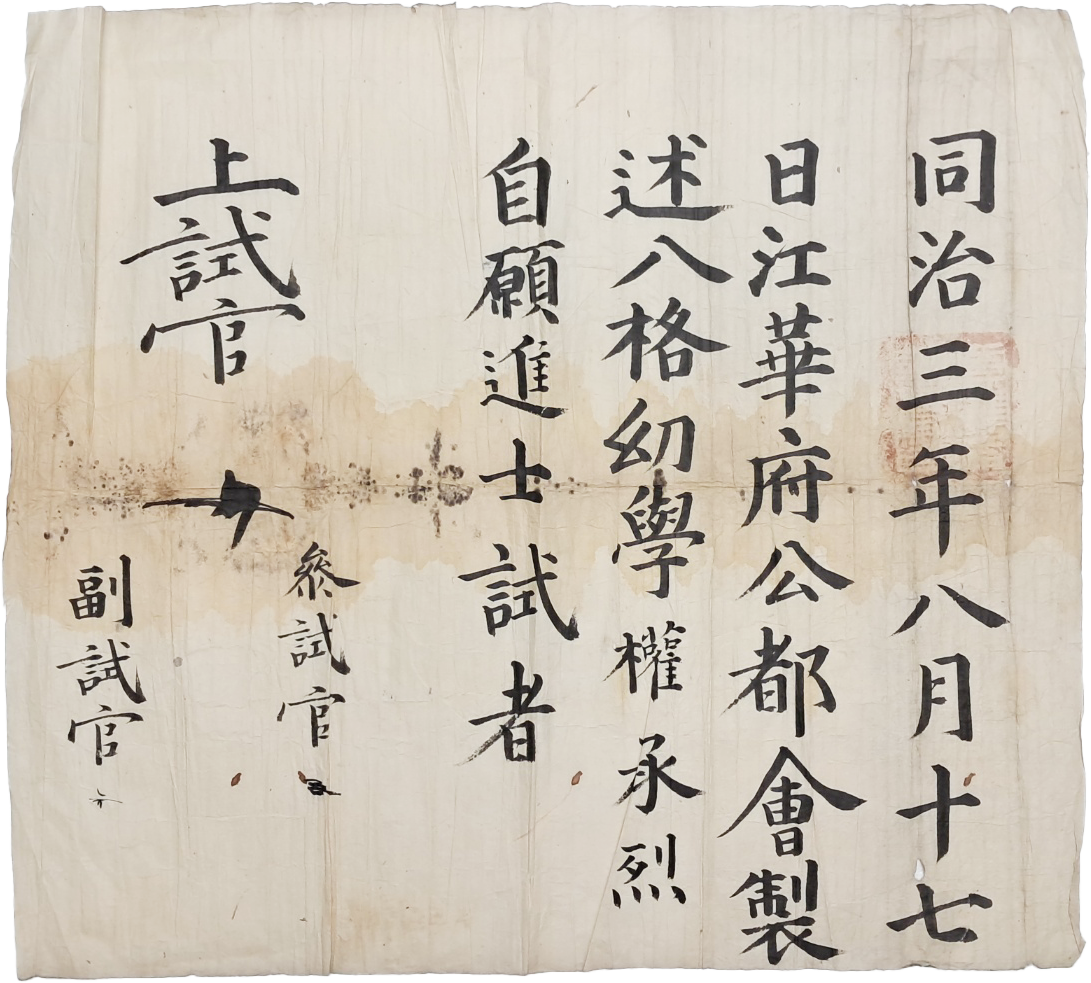 同治三年八月十七
日江華府公都會製
述八格幼學權承烈
自願進士試者
參試官
上試官
副試官